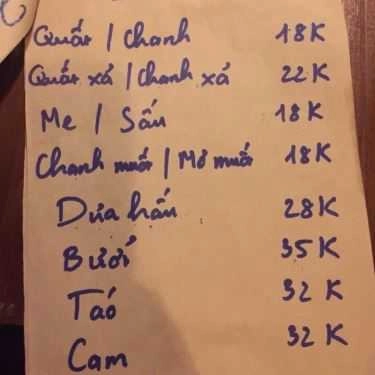 Quất / chanh 18K
Quất xả / chanh xả 22K
Me / Sấu 18K
Chanh muối / Mơ muối 18K
Dưa hấu 28K
Bưởi 35K
Táo 32K
Cam 32K